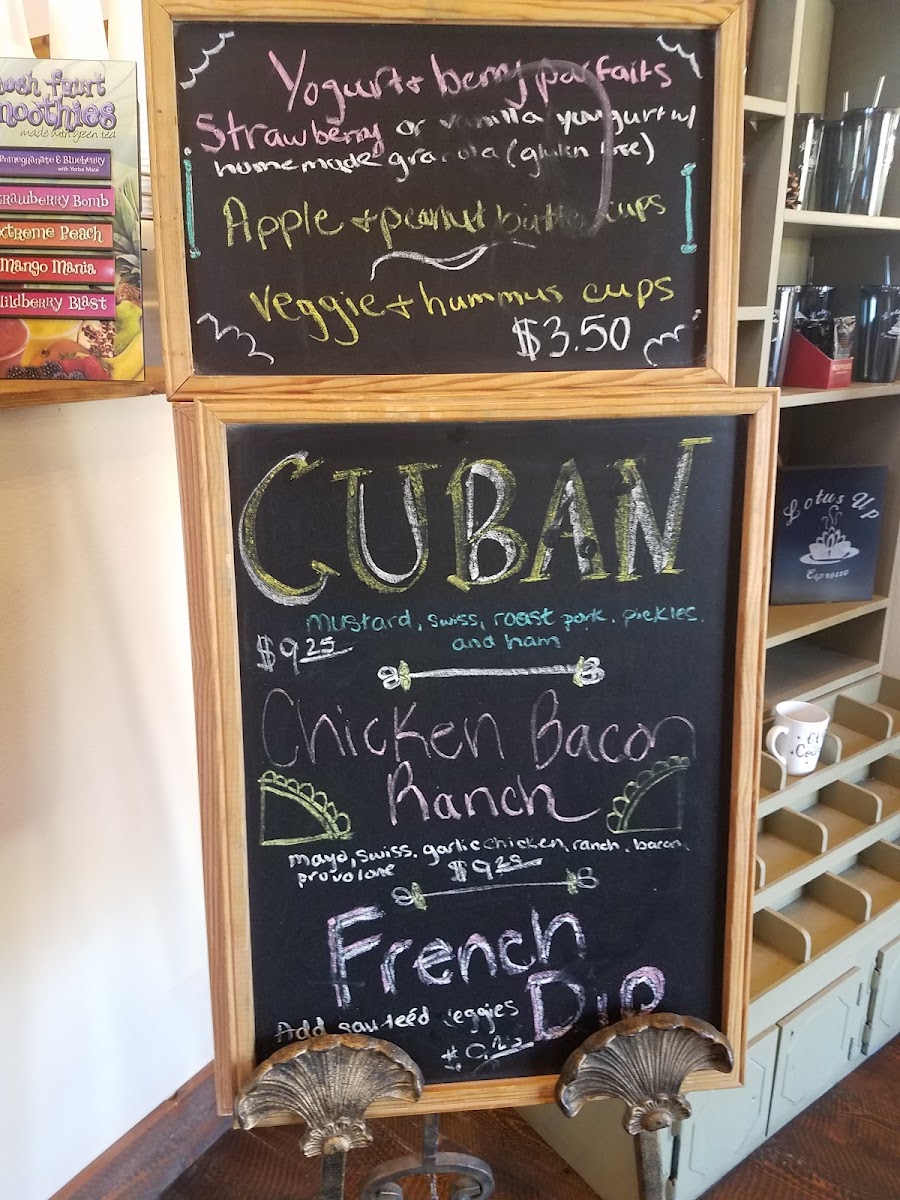 Yogurt + berry parfaits
Strawberry or vanilla yougurt w/
homemade granola (gluten free)
Apple + peanut butter cups
veggie + hummus cups
$3.50
CUBAN
mustard, swiss, roast pork, pickles,
and ham
$9.25
Chicken Bacon
Ranch
mayo, swiss, garlic chicken, ranch, bacon,
provolone
$9.25
French
Dip
Add sauteéd veggies
$9.25
fruit
smoothies
made with green tea
Pomegranate & Blueberry
with Yerba Maté
Strawberry Bomb
Extreme Peach
Mango Mania
Wildberry Blast
Lotus Up
Espresso